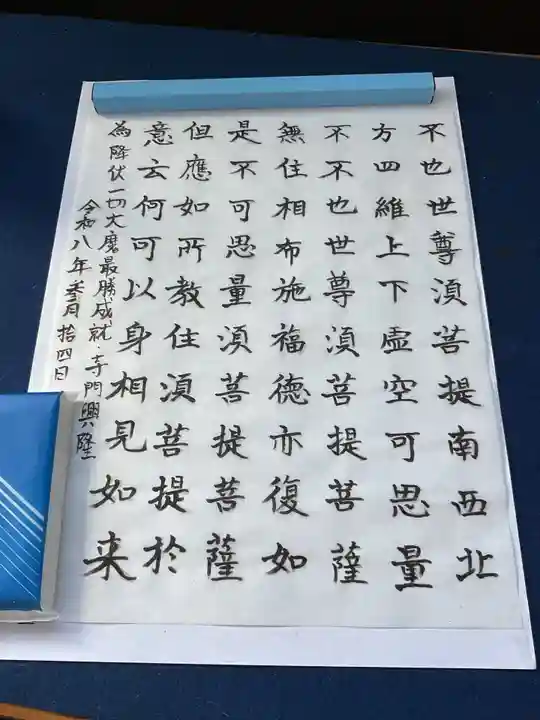 不也世尊須菩提南西北
方四維上下虚空可思量
不不也世尊須菩提菩薩
無住相布施福徳亦復如
是不可思量須菩提菩薩
但應如所教住須菩提於
意云何可以身相見如来
為降伏一切大魔最勝成就・寺門興隆
令和八年参月拾四日